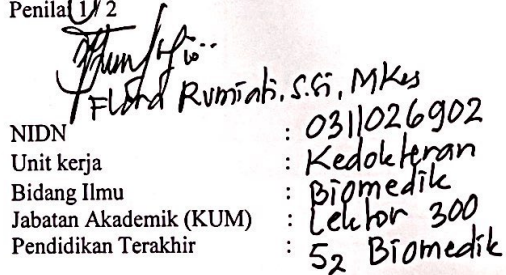 Penilai 1/2
Flora Rumiati, S.Si, MKes
NIDN : 0311026902
Unit kerja : Kedokteran
Bidang Ilmu : Biomedik
Jabatan Akademik (KUM) : Lektor 300
Pendidikan Terakhir : S2 Biomedik